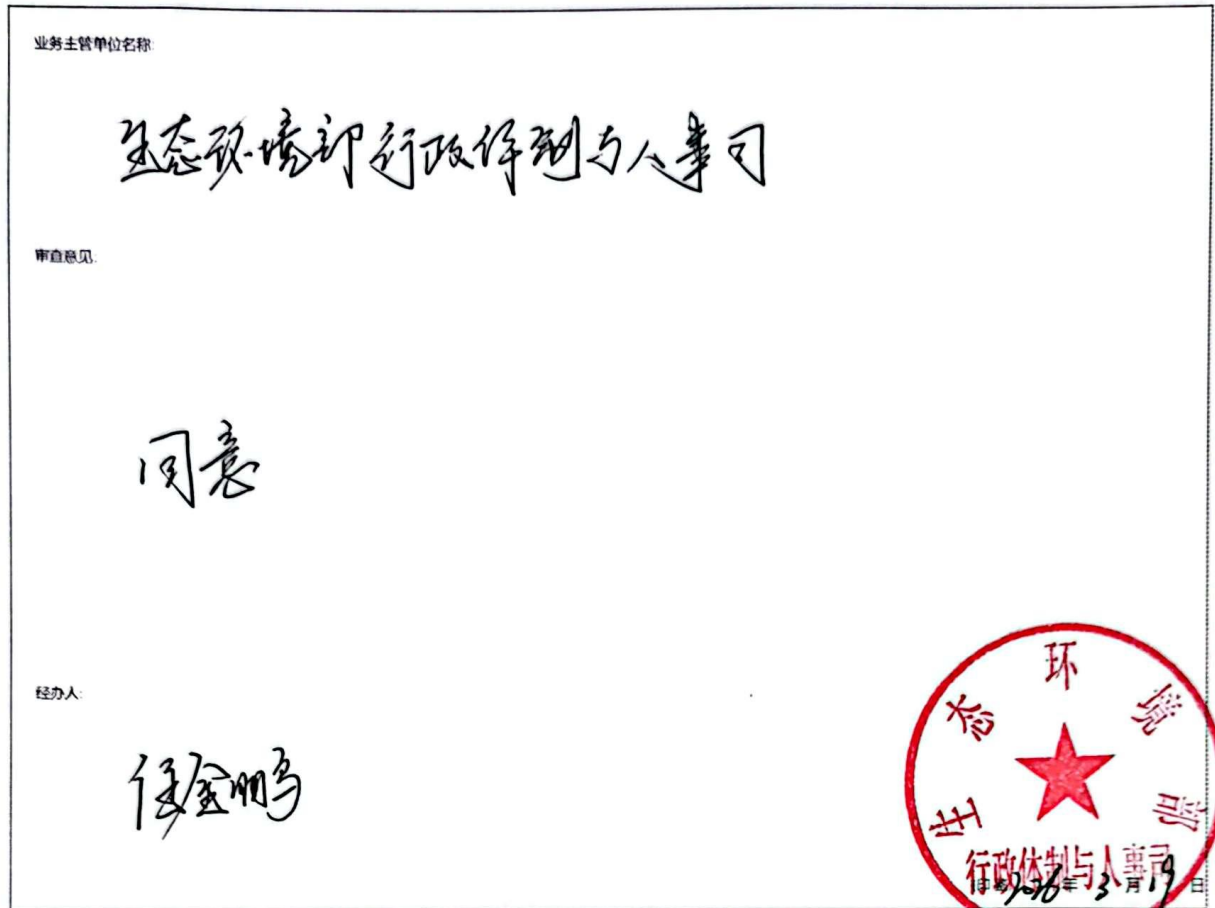 业务主管单位名称:
生态环境部行政体制与人事司
审查意见:
同意
经办人:
任金鹏
生态环境部
行政体制与人事司
印章 2026年3月19日